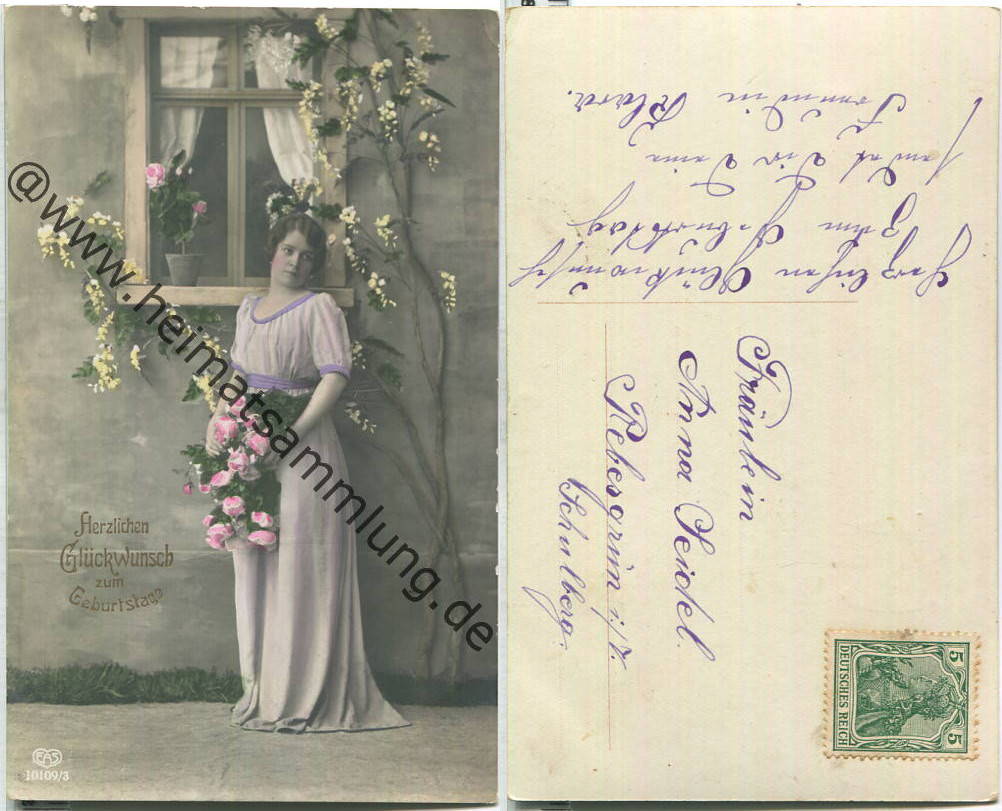 Herzlichen
Glückwunsch
zum
Geburtstage
EAS
10109/3
@www.heimatsammlung.de
Herzlichen Glückwunsch
Zum Geburtstag
sendet Dir Deine
Freundin Klara.
Fräulein
Anna Seidel.
Rebesgrün i./V.
Schulberg.
DEUTSCHES REICH
5
5